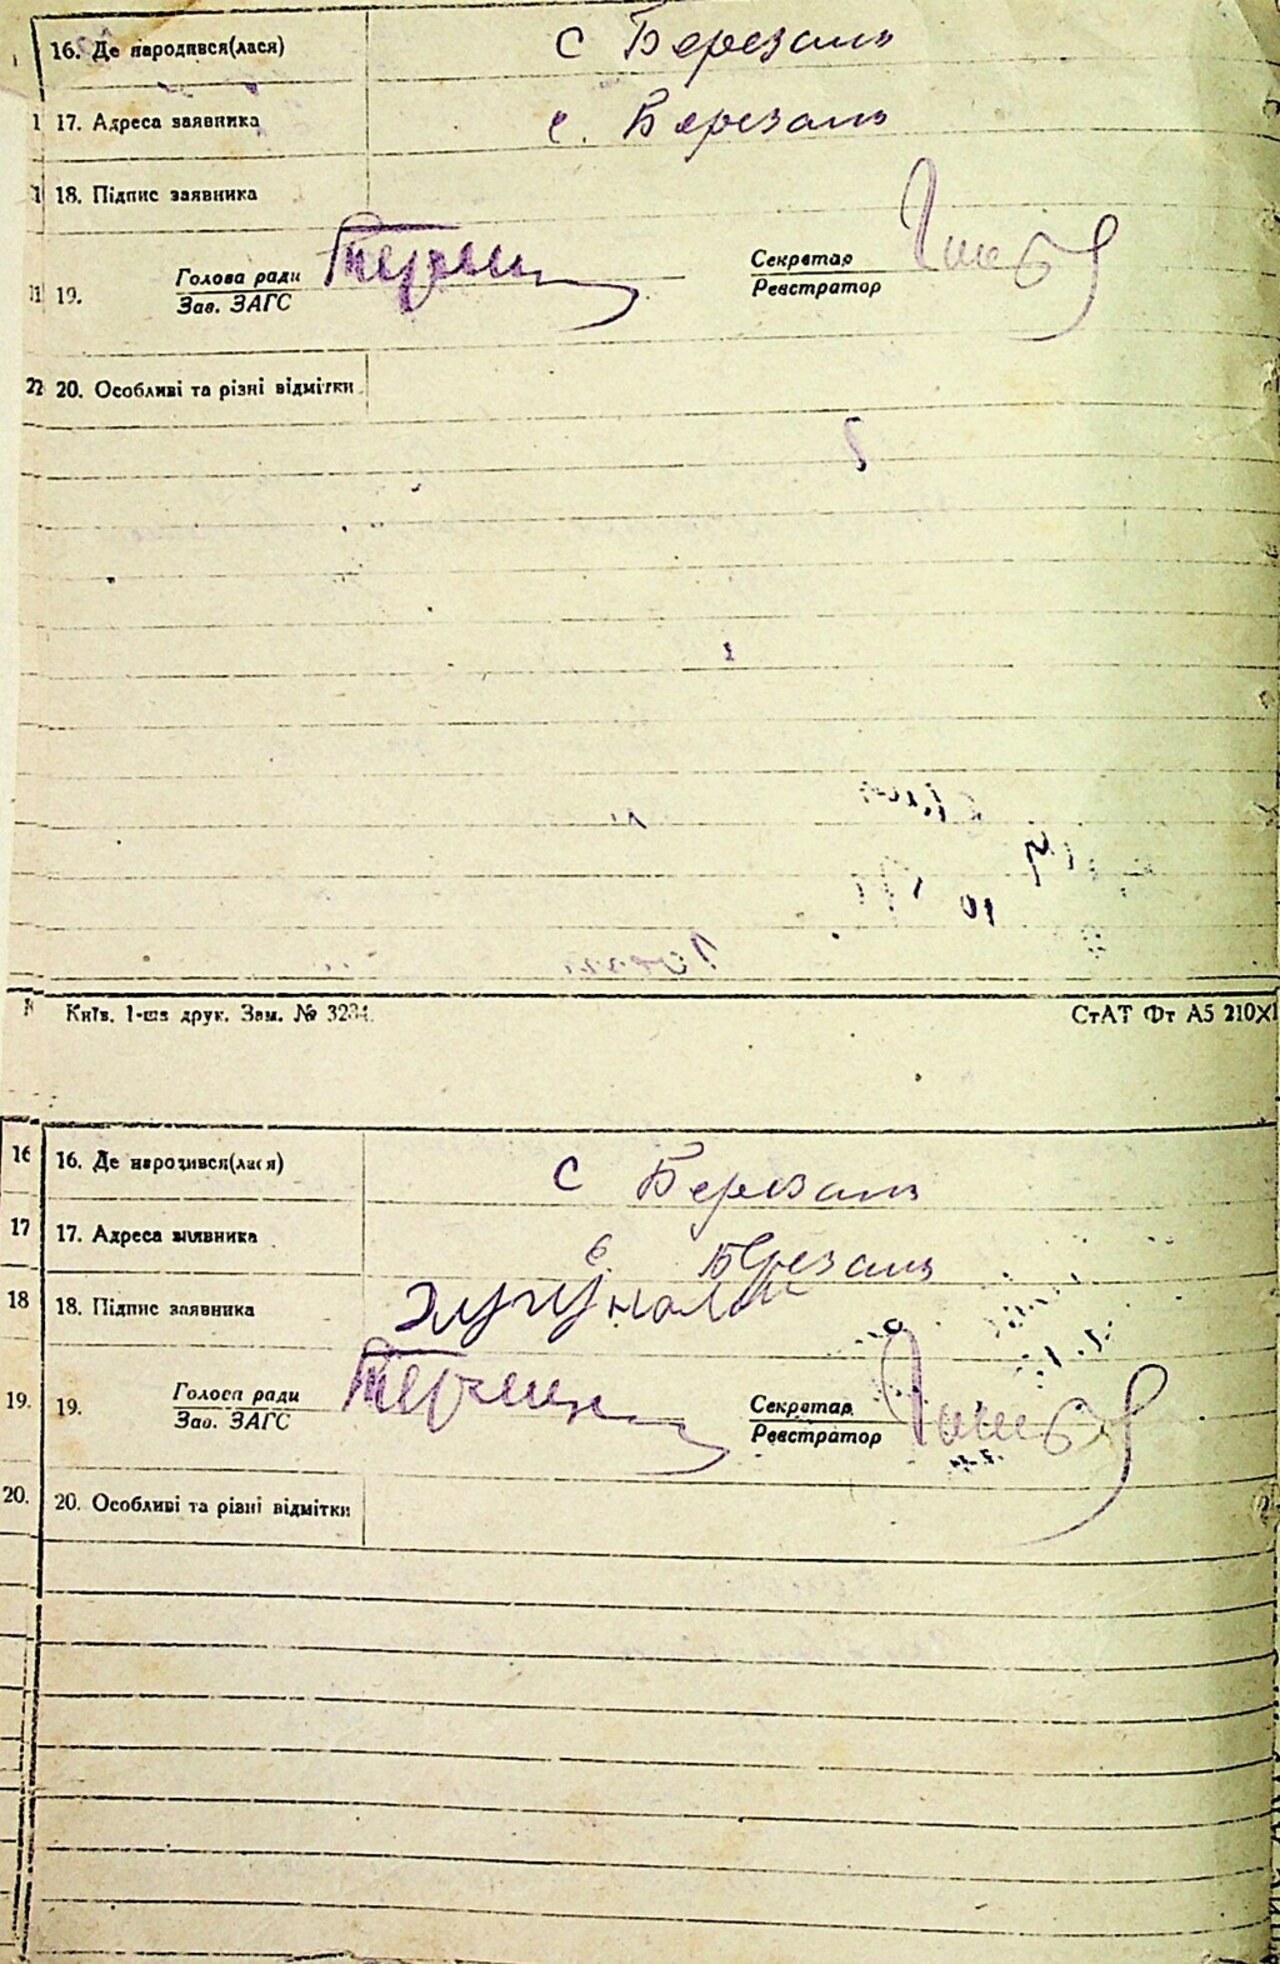 16. Де народився(лася) с Березань
17. Адреса заявника с. Березань
18. Підпис заявника
19. Голова ради
Зав. ЗАГС
Секретар
Реєстратор
20. Особливі та різні відмітки
Київ. 1-ша друк. Зам. № 3234. СтАТ Фт А5 210X1
16 16. Де народився(лася) с Березань
17 17. Адреса заявника с. Березань
18 18. Підпис заявника
19. 19. Голова ради
Зав. ЗАГС
Секретар
Реєстратор
20. 20. Особливі та різні відмітки